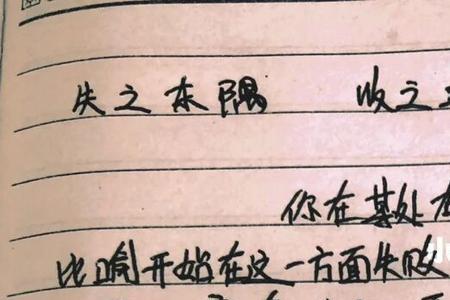 失之东隅 收之
你在某处
比喻开始在这一方面失败